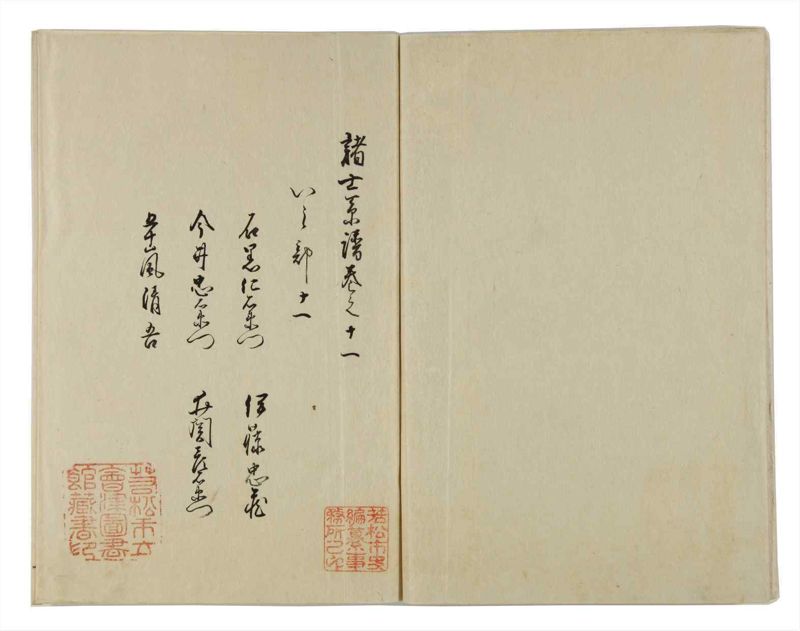 諸士系譜巻之十一
い之部十一
石黒仁右衛門
伊藤忠蔵
今井忠右衛門
井関右衛門
五十嵐清吾
若松市史
編纂事
務所之印
若松市立
會津圖書
館藏書印